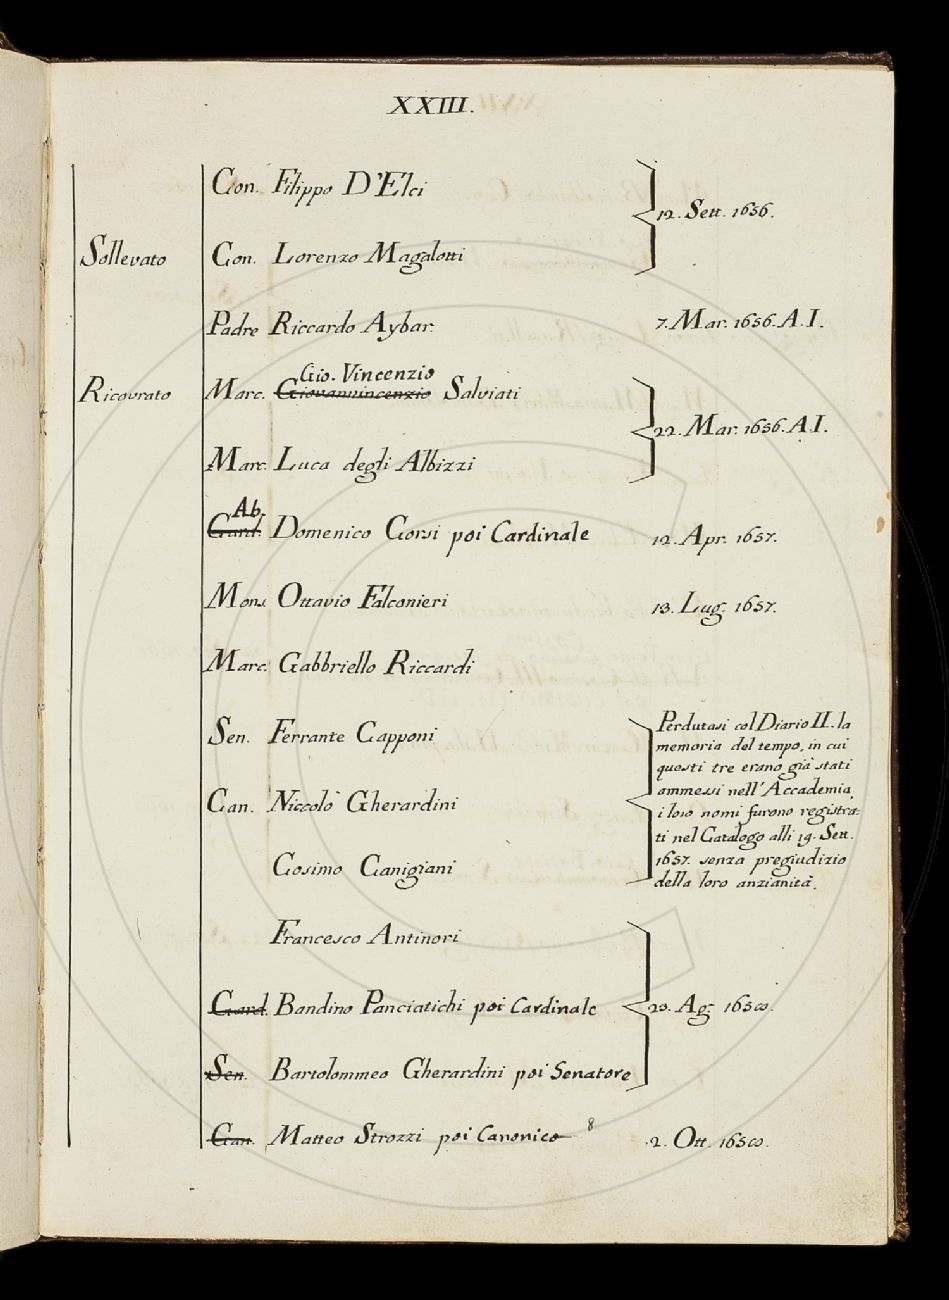 XXIII.
Con. Filippo D'Elci
12. Sett. 1656.
Sollevato Con. Lorenzo Magalotti
Padre Riccardo Aybar. 7. Mar. 1656. A.I.
Gio. Vincenzio
Ricovrato Marc. Giovanvincenzio Salviati
22. Mar. 1656. A.I.
Marc. Luca degli Albizzi
Ab.
Card. Domenico Corsi poi Cardinale 12. Apr. 1657.
Mons. Ottavio Falconieri 13. Lug. 1657.
Marc. Gabbriello Riccardi
Sen. Ferrante Capponi
Can. Niccolò Gherardini
Cosimo Canigiani
Perdutasi col Diario II. la
memoria del tempo, in cui
questi tre erano già stati
ammessi nell'Accademia,
i loro nomi furono registra-
ti nel Catalogo alli 19. Sett.
1657. senza pregiudizio
della loro anzianità.
Francesco Antinori
Card. Bandino Panciatichi poi Cardinale 23. Ag. 1658.
Sen. Bartolommeo Gherardini poi Senatore
Can. Matteo Strozzi poi Canonico 8 2. Ott. 1658.